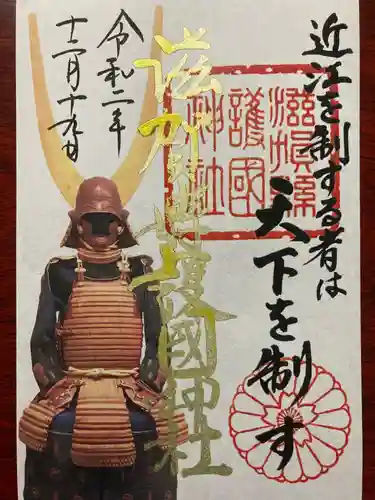 近江を制する者は
天下を制す
滋賀縣護國神社
滋賀縣
護國
神社
令和二年
十二月十九日